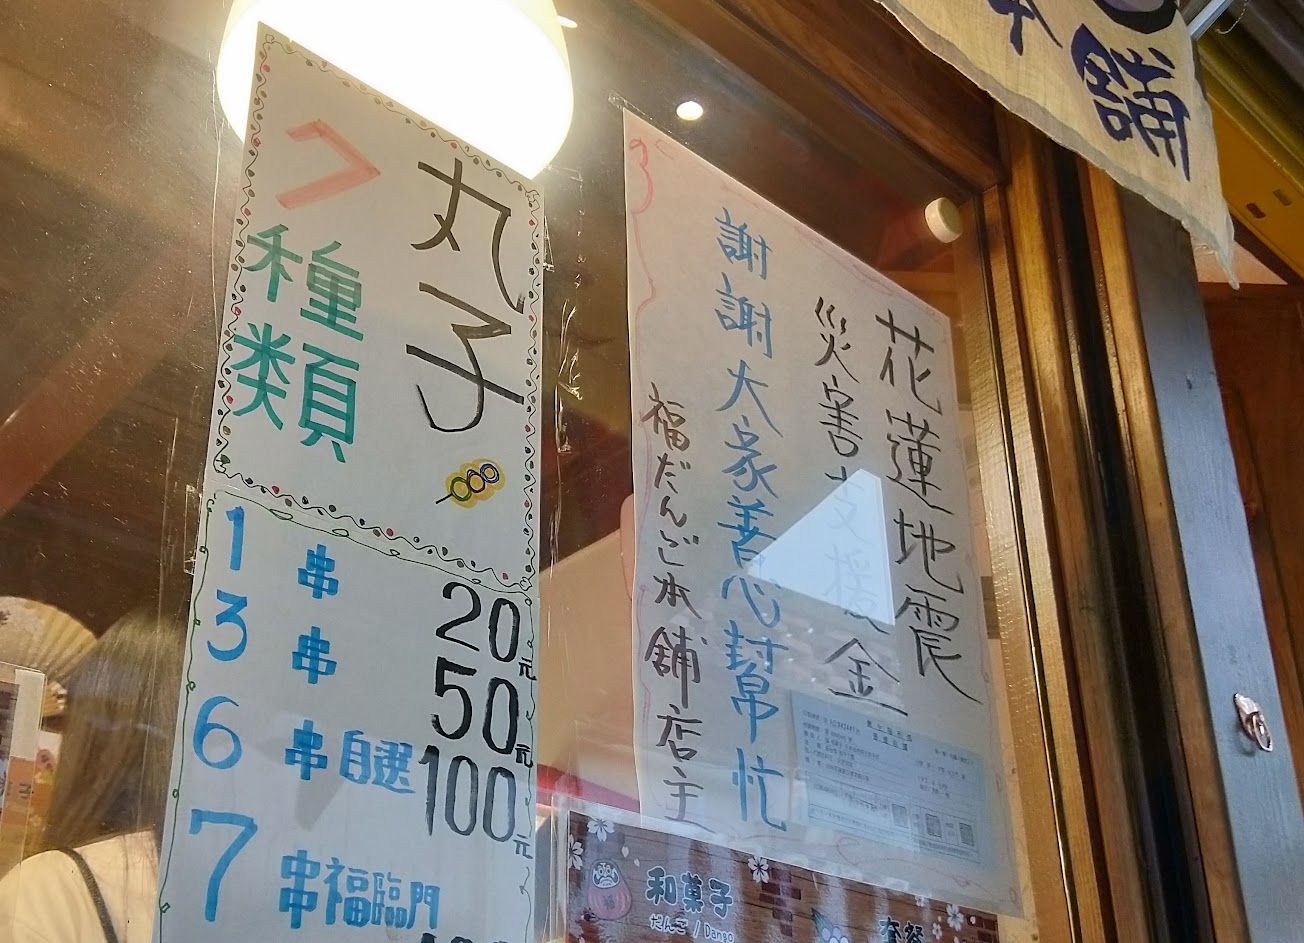 丸子
7種類
1串 20元
3串 50元
6串自選 100元
7串福臨門
花蓮地震
災害支援金
謝謝大家善心幫忙
福だんご本舗店主
和菓子
だんご / Dango
套餐
本舗